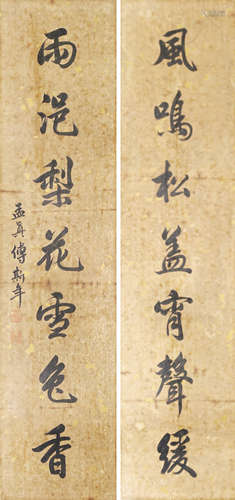 風鳴松蓋宵聲緩
雨浥梨花雪色香
孟真傅斯年